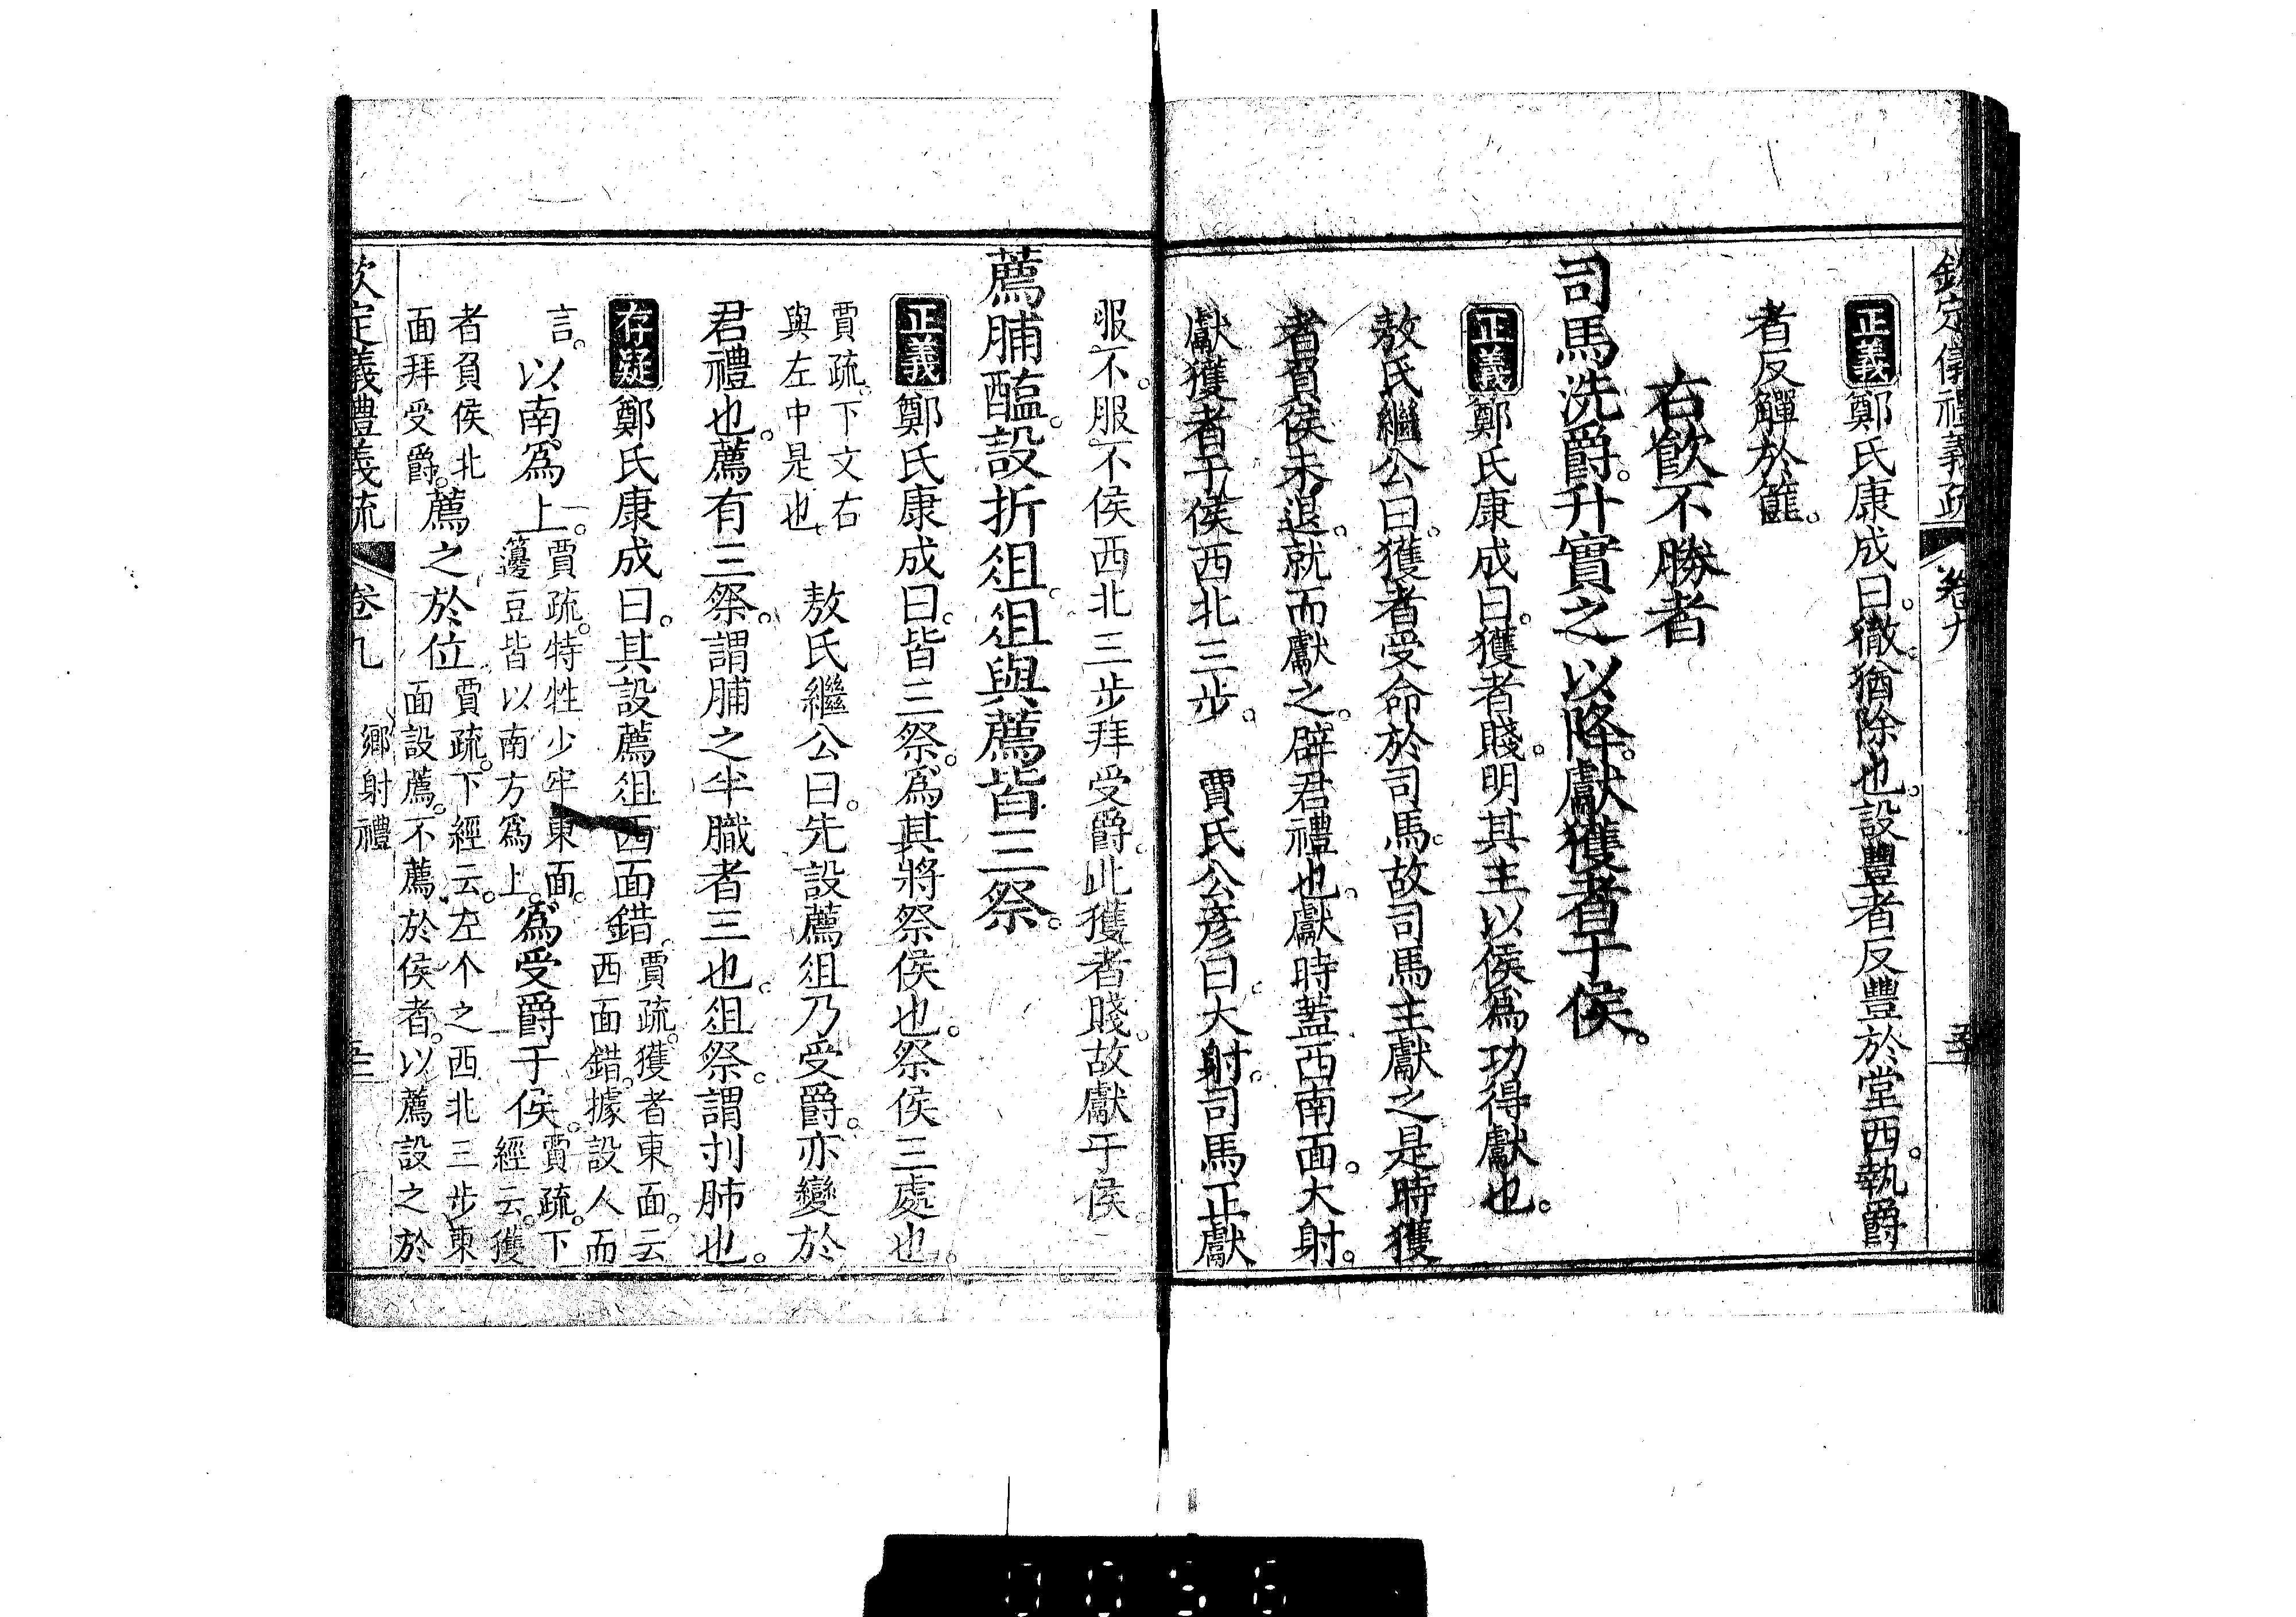 欽定儀禮義疏 卷九
正義鄭氏康成曰。徹猶除也。設豐者反豐於堂西。執爵
者反觶於篚。
右飲不勝者
司馬洗爵。升實之以降。獻獲者于侯。
正義鄭氏康成曰。獲者賤。明其主以侯爲功得獻也。
敖氏繼公曰。獲者受命於司馬。故司馬主獻之。是時獲
者負侯未退。就而獻之。辟君禮也。獻時蓋西南面。大射。
獻獲者于侯西北三步。 賈氏公彥曰。大射。司馬正獻
服不。服不侯西北三步拜受爵。此獲者賤。故獻于侯。
薦脯醢。設折俎。俎與薦皆三祭。
正義鄭氏康成曰。皆三祭。爲其將祭侯也。祭侯三處也。
賈疏。下文右
與左中是也。
敖氏繼公曰。先設薦俎乃受爵。亦變於
君禮也。薦有三祭。謂脯之半膱者三也。俎祭。謂刌肺也。
存疑鄭氏康成曰。其設薦俎西面錯。
賈疏。獲者東面。云
西面錯。據設人而
言。
以南爲上。
賈疏。特牲少牢東面。
籩豆皆以南方爲上。
爲受爵于侯。
賈疏。下
經云。獲
者負侯北
面拜受爵。
薦之於位
賈疏。下經云。左个之西北三步東
面設薦。不薦於侯者。以薦設之於
欽定儀禮義疏 卷九 鄉射禮